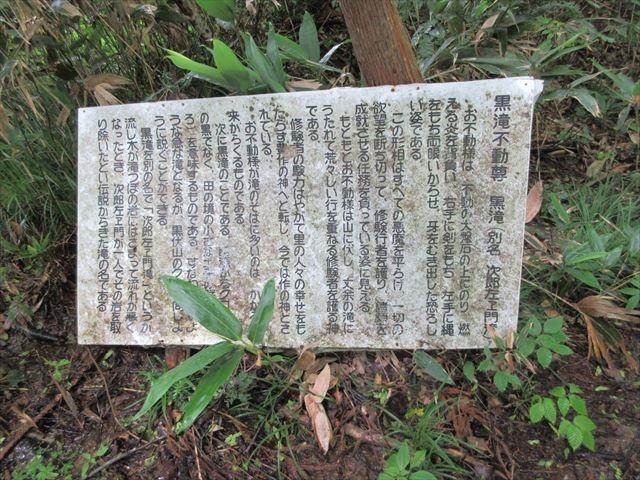 黒滝不動尊 黒滝(別名 次郎左ェ門
お不動様は、不動の大盤石の上にのり、燃
える炎を背負い、右手に剣をもち、左手に縄
をもち両眼いからせ、牙をむき出した恐ろし
い姿である。
この形相はすべての悪魔を平らげ、一切の
欲望を断ち切って、修験行者を護り、諸願を
成就させる任務を負っている姿に見える。
もともとお不動様は山に伏し、丈余の滝に
うたれて荒々しい行を重ねる修験者を護る神
である。
修験者の験力はやがて里の人々の幸せをも
たらす農作の神へと転し、今では作の神とさ
れている。
お不動様が滝のそばに多いのは
来からくるものである。
次に黒滝のことである。
の黒でなく、田の境の小
ろ」を意味するものである。
うな急な滝となるが、黒伏山のク
うに説くことができる。
黒滝を別の名で「次郎左ェ門滝」というが
流し木が滝つぼの岩にはさまって流れが悪く
なったとき、次郎左ェ門が一人でその岩を取
り除いたという伝説からきた滝の名である